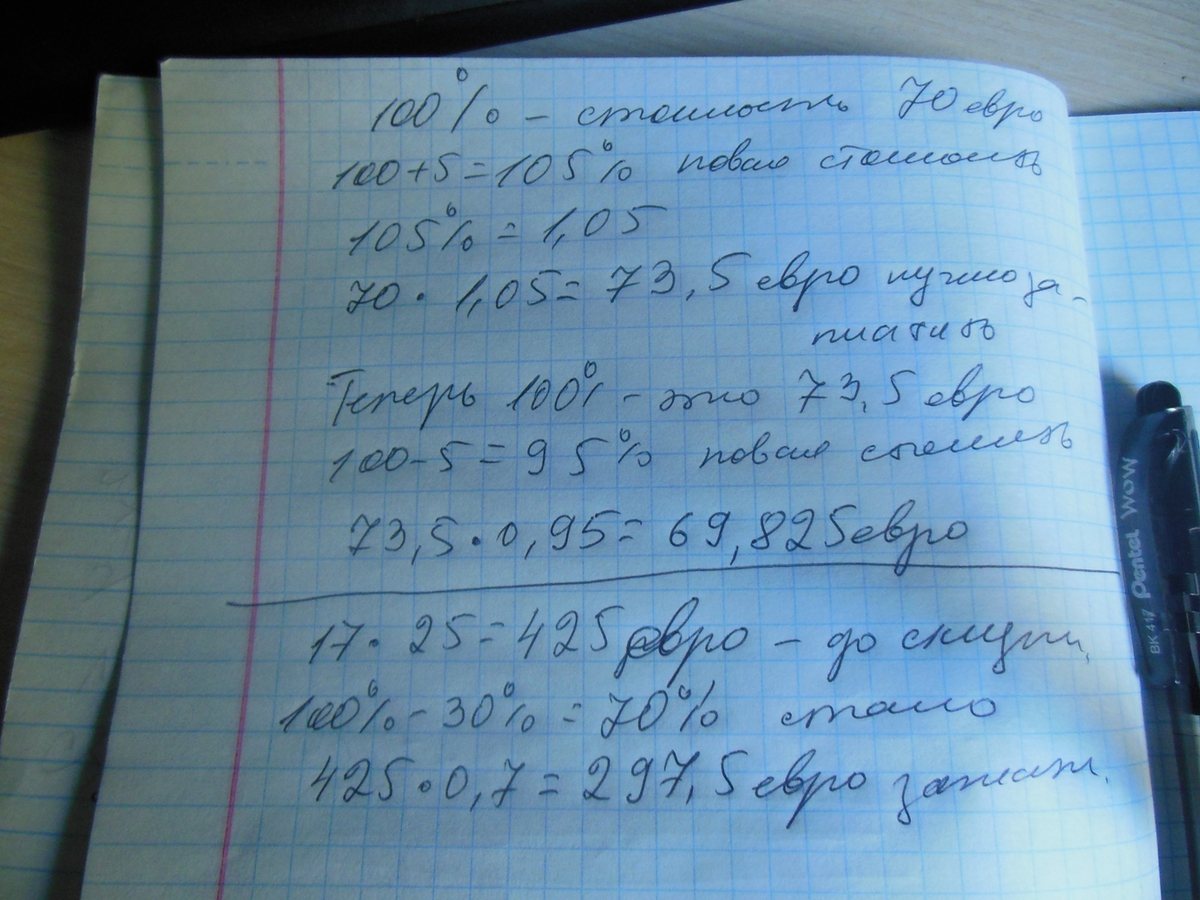 100% – стоимость 70 евро
100+5=105% новая стоимость
105% = 1,05
70 · 1,05= 73,5 евро нужно за-
платить
Теперь 100% – это 73,5 евро
100-5=95% новая стоимость
73,5·0,95= 69,825 евро
17· 25=425 евро – до скидки,
100%-30% = 70% стало
425·0,7= 297,5 евро заплат.
Pentel WOW
BK417